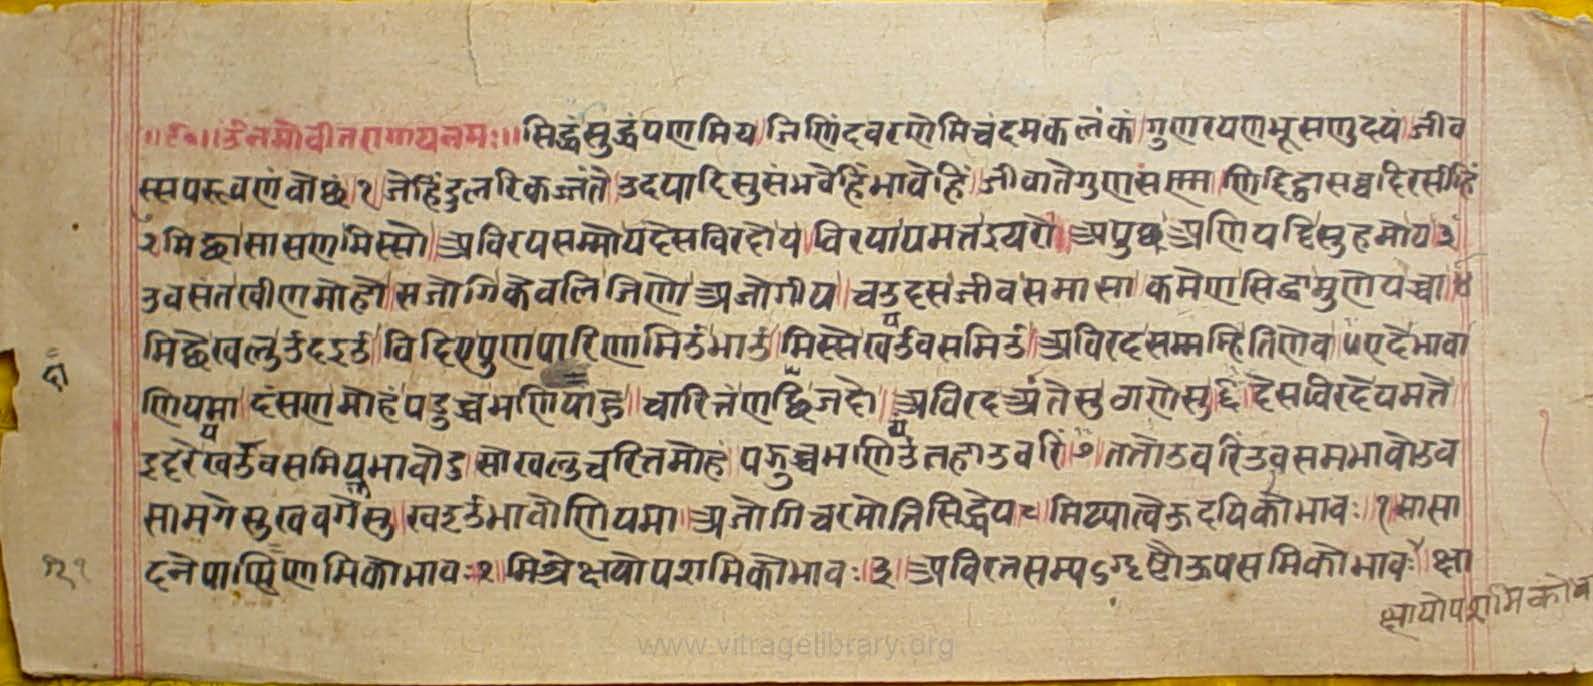 ॥ ६०॥ उंनमोवीतरागायनमः॥ सिद्धंसुद्धंपणमिय जिणिंदवरणेमिचंदमकलंकं गुणरयणभूसणुदयं जीव
स्सपरूवणंवोछं १ जेहिंदुलरिकज्जंते उदयादिसुसंभवेहिंभावेहिं जीवातेगुणसंणा णिद्दिट्ठासव्वदिरसीहिं
२ मिछासासणमिस्सो अविरयसम्मोयदेसविरदोय विरयापमतइयरो अपुव्व अणियट्टिसुहमोय ३
उवसंतखीणमोहो सजोगिकेवलिजिणो अजोगीय चउदसजीवसमासा कमेणसिद्धामुणेयव्वा ४
मिछेखलुउदइउ विदिएपुणपारिणामिउभाउ मिस्सेखउवसमिउ अविरदसम्मम्हितिणेव ५ एदेभावा
णियमा दंसणमोहंपडुच्चभणियाहु चारितंणछिजदो अविरदअंतेसुठाणेसु ६ देसविरदेपमते
इदरेखउवसमियभावोइ सोखलुचरितमोहं पडुच्चभणिउतहाउवरिं ७ ततोउवरिंउवसमभावोउव
सामगेसुखवगेसु खइउभावोणियमा अजोगिचरमोतिसिद्धेय ८ मिथ्यात्वेऊदयिकोभावः १ सासा
दनेपारिणामिकोभावः २ मिश्रेक्षयोपशमिकोभावः ३ अविरतसम्यऽग्दृष्टौऊपसमिकोभावः क्षा
क्षायोपशमिकोव
www.vitragelibrary.org